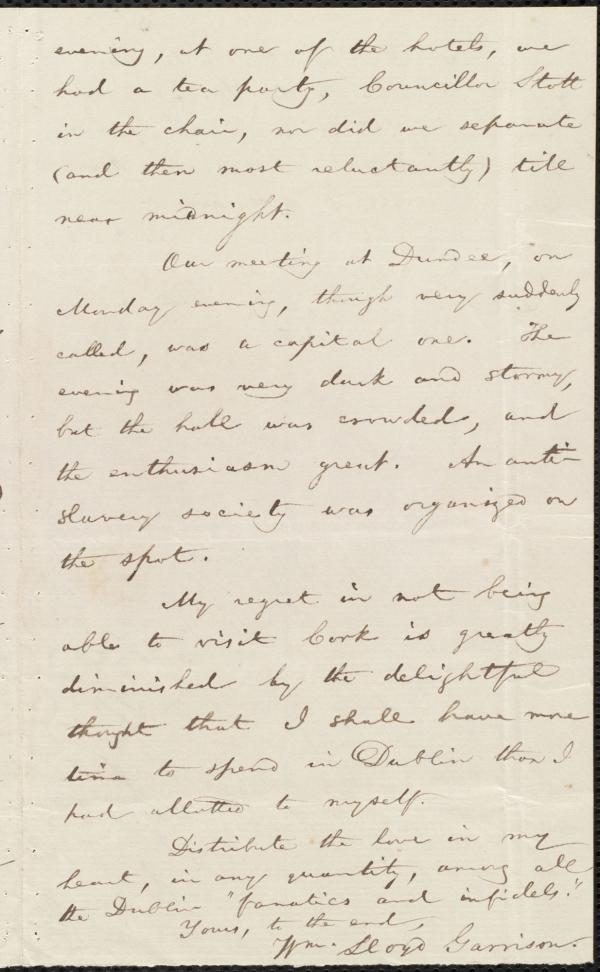 evening, at one of the hotels, we
had a tea party, Councillor Stott
in the chair, nor did we separate
(and then most reluctantly) till
near midnight.
Our meeting at Dundee, on
Monday evening, though very suddenly
called, was a capital one. The
evening was very dark and stormy,
but the hall was crowded, and
the enthusiasm great. An anti-
slavery society was organized on
the spot.
My regret in not being
able to visit Cork is greatly
diminished by the delightful
thought that I shall have more
time to spend in Dublin than I
had allotted to myself.
Distribute the love in my
heart, in any quantity, among all
the Dublin "fanatics and infidels."
Yours, to the end,
Wm. Lloyd Garrison.